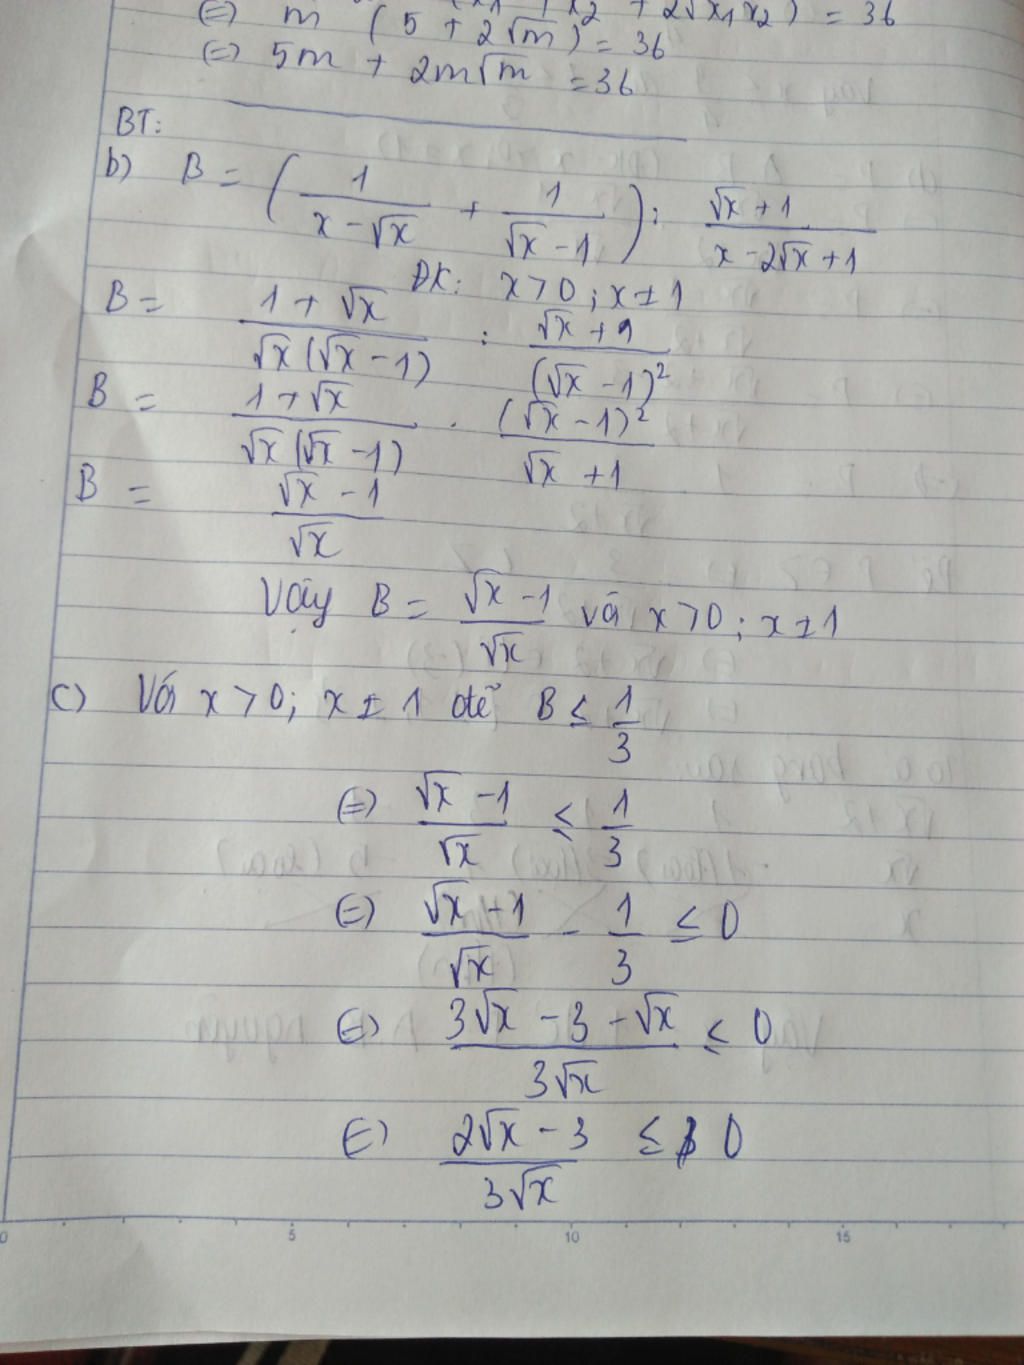 (=) m (x1 + x2 + 2√x1x2) = 36
(=) m (5 + 2√m) = 36
(=) 5m + 2m√m = 36
BT:
b) B = (1/(x - √x) + 1/(√x - 1)) : (√x + 1)/(x - 2√x + 1)
ĐK: x > 0 ; x ± 1
B = (1 + √x)/(√x(√x - 1)) : (√x + 1)/(√x - 1)²
B = (1 + √x)/(√x(√x - 1)) . (√x - 1)²/(√x + 1)
B = (√x - 1)/√x
Vậy B = (√x - 1)/√x với x > 0 ; x ± 1
c) Với x > 0; x ± 1 để B ≤ 1/3
(=) (√x - 1)/√x ≤ 1/3
(=) (√x - 1)/√x - 1/3 ≤ 0
(=) (3√x - 3 - √x)/(3√x) ≤ 0
(=) (2√x - 3)/(3√x) ≤ 0
0 5 10 15